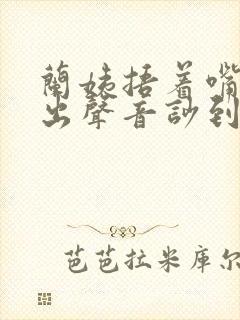 蘭姨捂着嘴
出聲音訬到
芭芭拉米库尔